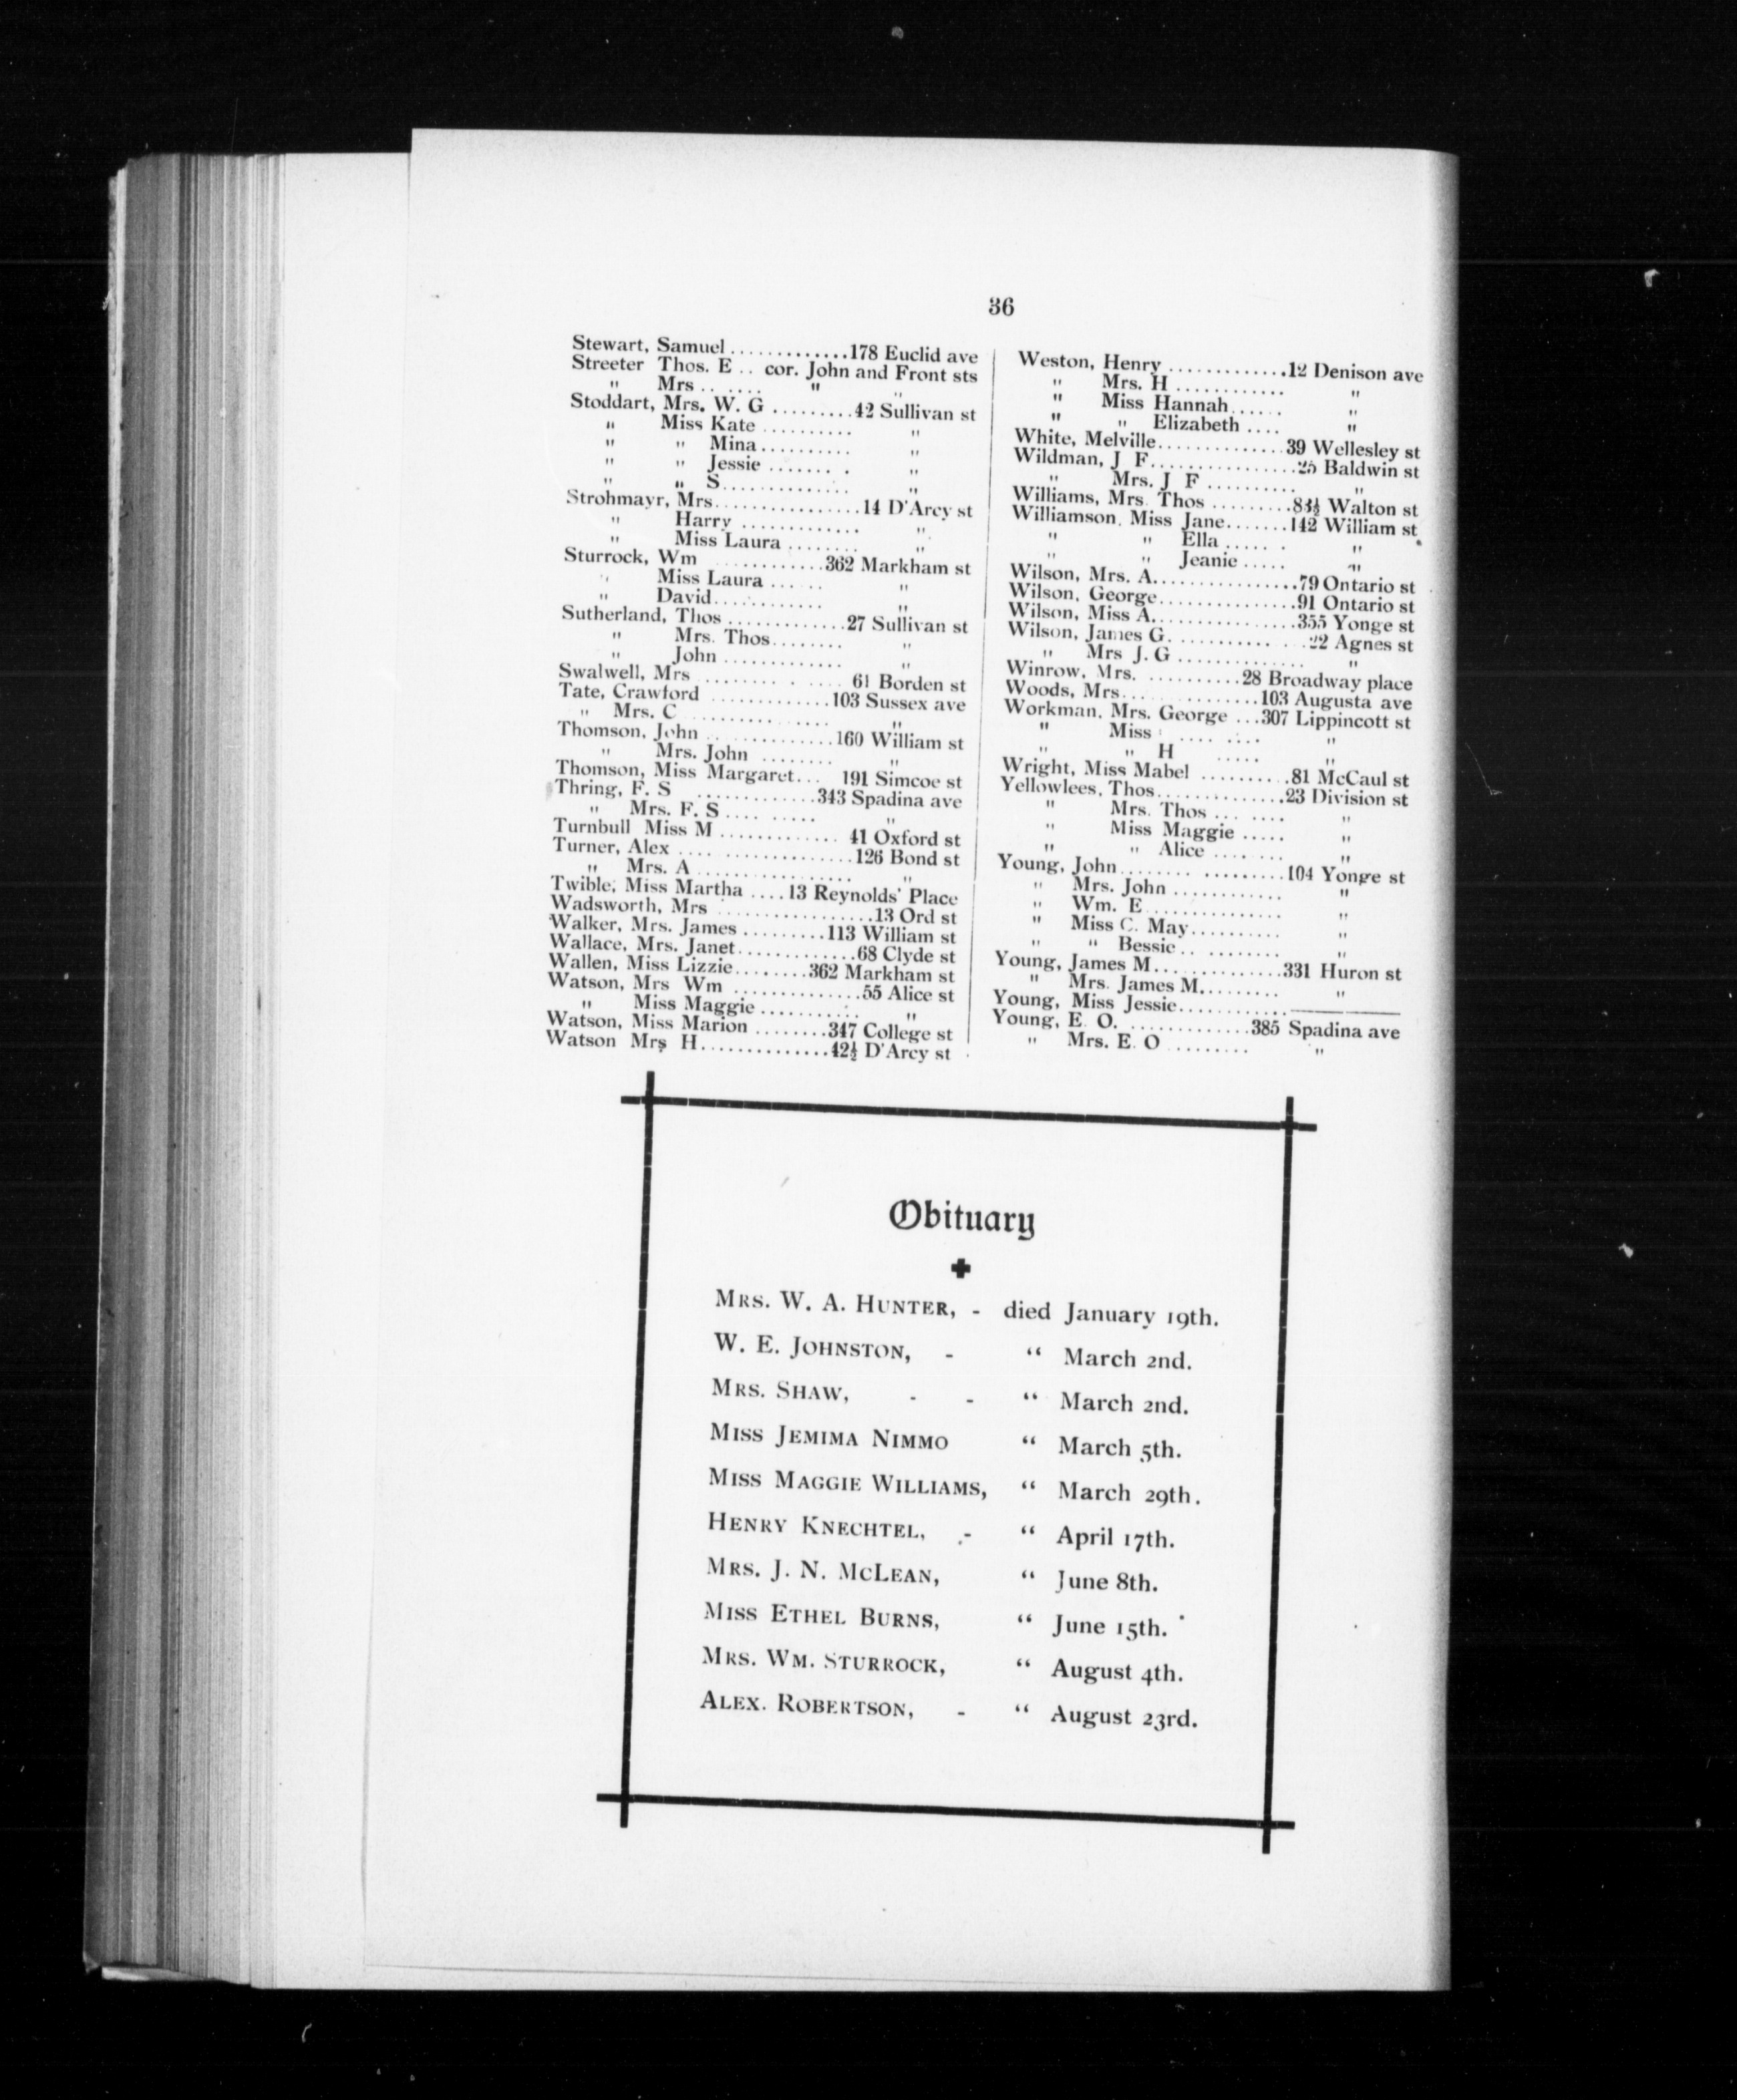 36
Stewart, Samuel.............178 Euclid ave
Streeter Thos. E .. cor. John and Front sts
" Mrs.. .... " "
Stoddart, Mrs. W. G .........42 Sullivan st
" Miss Kate .......... "
" " Mina.......... "
" " Jessie ....... . "
" " S.............. "
Strohmayr, Mrs................14 D'Arcy st
" Harry ............. "
" Miss Laura ........ "
Sturrock, Wm ............362 Markham st
" Miss Laura ...... "
" David............ "
Sutherland, Thos .............27 Sullivan st
" Mrs. Thos........ "
" John ............. "
Swalwell, Mrs ......... . .... 61 Borden st
Tate, Crawford .............103 Sussex ave
" Mrs. C ................ "
Thomson, John ..............160 William st
" Mrs. John ........ "
Thomson, Miss Margaret... 191 Simcoe st
Thring, F. S .............343 Spadina ave
" Mrs. F. S .... ..... "
Turnbull Miss M ............. 41 Oxford st
Turner, Alex .... ..............126 Bond st
" Mrs. A ................. "
Twible, Miss Martha ....13 Reynolds' Place
Wadsworth, Mrs .................13 Ord st
Walker, Mrs. James .........113 William st
Wallace, Mrs. Janet.............68 Clyde st
Wallen, Miss Lizzie........362 Markham st
Watson, Mrs Wm ..............55 Alice st
" Miss Maggie ........... "
Watson, Miss Marion ........347 College st
Watson Mrs H..............42½ D'Arcy st
Weston, Henry .............12 Denison ave
" Mrs. H ............ "
" Miss Hannah...... "
" " Elizabeth .... "
White, Melville..............39 Wellesley st
Wildman, J F................25 Baldwin st
" Mrs. J F .......... "
Williams, Mrs. Thos .........83½ Walton st
Williamson, Miss Jane.......142 William st
" " Ella ..... . "
" " Jeanie ..... "
Wilson, Mrs. A................79 Ontario st
Wilson, George...............91 Ontario st
Wilson, Miss A................355 Yonge st
Wilson, James G. ........... . ..22 Agnes st
" Mrs J. G .............. "
Winrow, Mrs. ..........28 Broadway place
Woods, Mrs...............103 Augusta ave
Workman, Mrs. George ...307 Lippincott st
" Miss .... .... "
" " H ..... "
Wright, Miss Mabel ..........81 McCaul st
Yellowlees, Thos..............23 Division st
" Mrs. Thos ... .... "
" Miss Maggie ..... "
" " Alice ........ "
Young, John........ .........104 Yonge st
" Mrs. John ............ "
" Wm. E............... "
" Miss C. May.......... "
" " Bessie .. ........ "
Young, James M..............331 Huron st
" Mrs. James M......... "
Young, Miss Jessie............————
Young, E. O. .............385 Spadina ave
" Mrs. E. O ......... "
Obituary
Mrs. W. A. Hunter, - died January 19th.
W. E. Johnston, - " March 2nd.
Mrs. Shaw, - - " March 2nd.
Miss Jemima Nimmo " March 5th.
Miss Maggie Williams, " March 29th.
Henry Knechtel, - " April 17th.
Mrs. J. N. McLean, " June 8th.
Miss Ethel Burns, " June 15th.
Mrs. Wm. Sturrock, " August 4th.
Alex. Robertson, - " August 23rd.